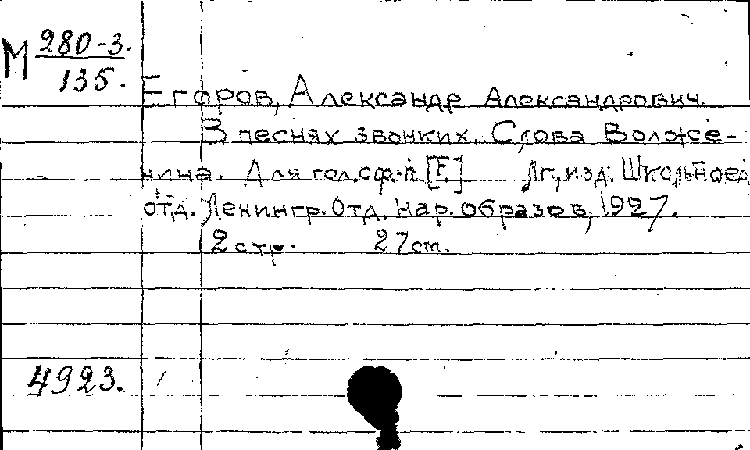 М 280-3.
135.
Егоров, Александр Александрович.
В песнях звонких. Слова Волже-
нина. Для гол. с ф-п. [E] Лг, изд. Школьноед
отд. Ленингр. Отд. Нар. образов, 1927.
2 стр. 27 cm.
4923.